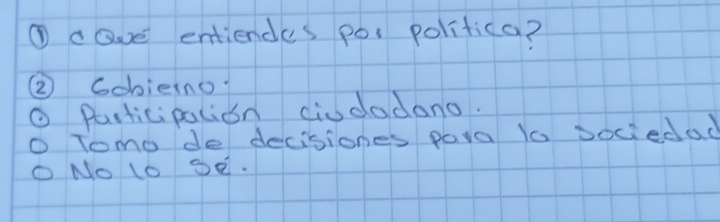 ① ¿Qué entiendes por política?
② Gobierno.
○ Participación ciudadano.
○ Toma de decisiones para la sociedad
○ No lo sé.